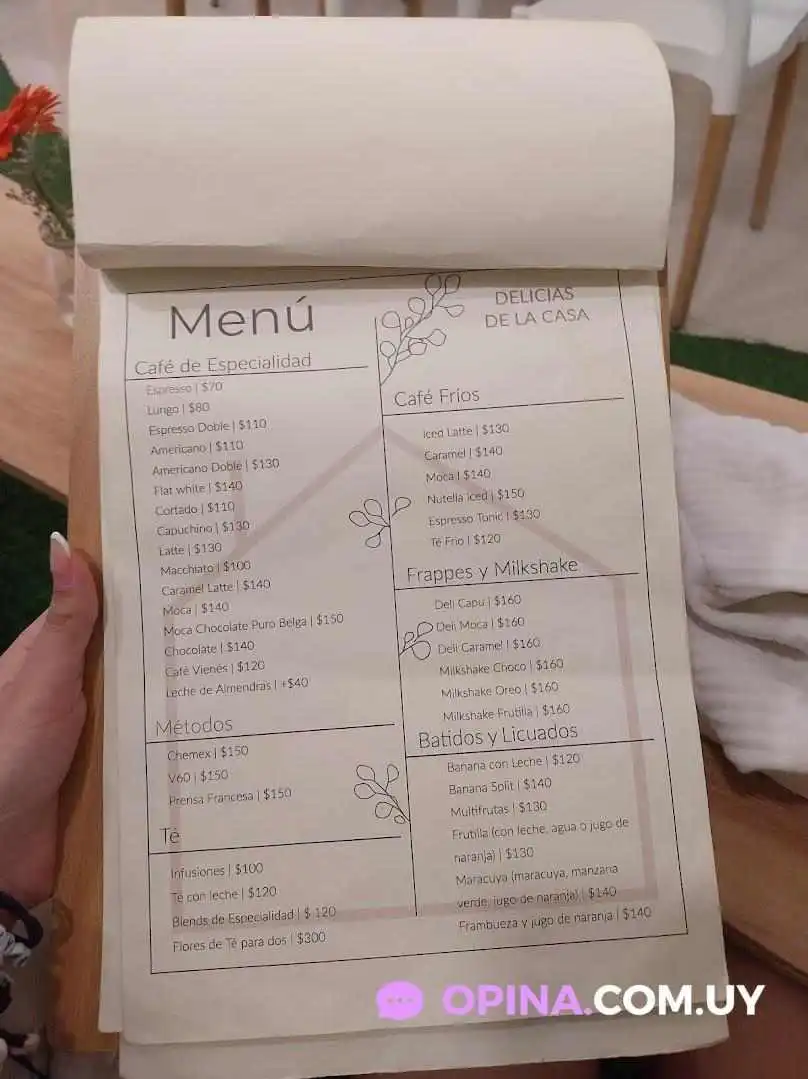 Menú
Café de Especialidad
Espresso | $70
Lungo | $80
Espresso Doble | $110
Americano | $110
Americano Doble | $130
Flat white | $140
Cortado | $110
Capuchino | $130
Latte | $130
Macchiato | $100
Caramel Latte | $140
Moca | $140
Moca Chocolate Puro Belga | $150
Chocolate | $140
Café Vienés | $120
Leche de Almendras | +$40
Métodos
Chemex | $150
V60 | $150
Prensa Francesa | $150
Té
Infusiones | $100
Té con leche | $120
Blends de Especialidad | $ 120
Flores de Té para dos | $300
DELICIAS
DE LA CASA
Café Frios
Iced Latte | $130
Caramel | $140
Moca | $140
Nutella Iced | $150
Espresso Tonic | $130
Té Frio | $120
Frappes y Milkshake
Deli Capu | $160
Deli Moca | $160
Deli Caramel | $160
Milkshake Choco | $160
Milkshake Oreo | $160
Milkshake Frutilla | $160
Batidos y Licuados
Banana con Leche | $120
Banana Split | $140
Multifrutas | $130
Frutilla (con leche, agua o jugo de
naranja) | $130
Maracuya (maracuya, manzana
verde, jugo de naranja) | $140
Frambueza y jugo de naranja | $140
OPINA.COM.UY